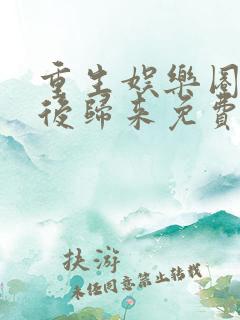 重生娛樂圈
後歸來免費
扶游
未经同意禁止转载